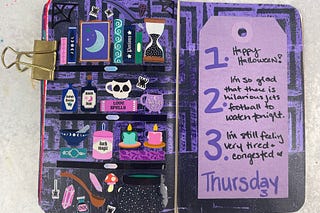 LOVE SPELLS
dark magic
1. Happy
Halloween!
2. I'm so glad
that there is
hilarious jets
football to
watch tonight.
3. I'm still feeling
very tired +
congested
Thursday